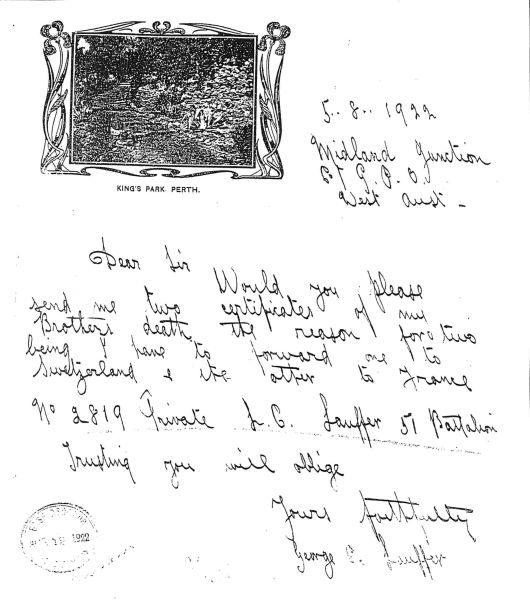 KING'S PARK PERTH.
5.. 8.. 1922
Midland Junction
C/ G. P. O.
West Aust -
Dear Sir
Would you please
send me two certificates of my
Brothers death the reason for two
being I have to forward one to
Switzerland & the other to France
No 2819 Private L. C. Lauffer 51 Battalion
Trusting you will oblige
Yours faithfully
George C. Lauffer
1922